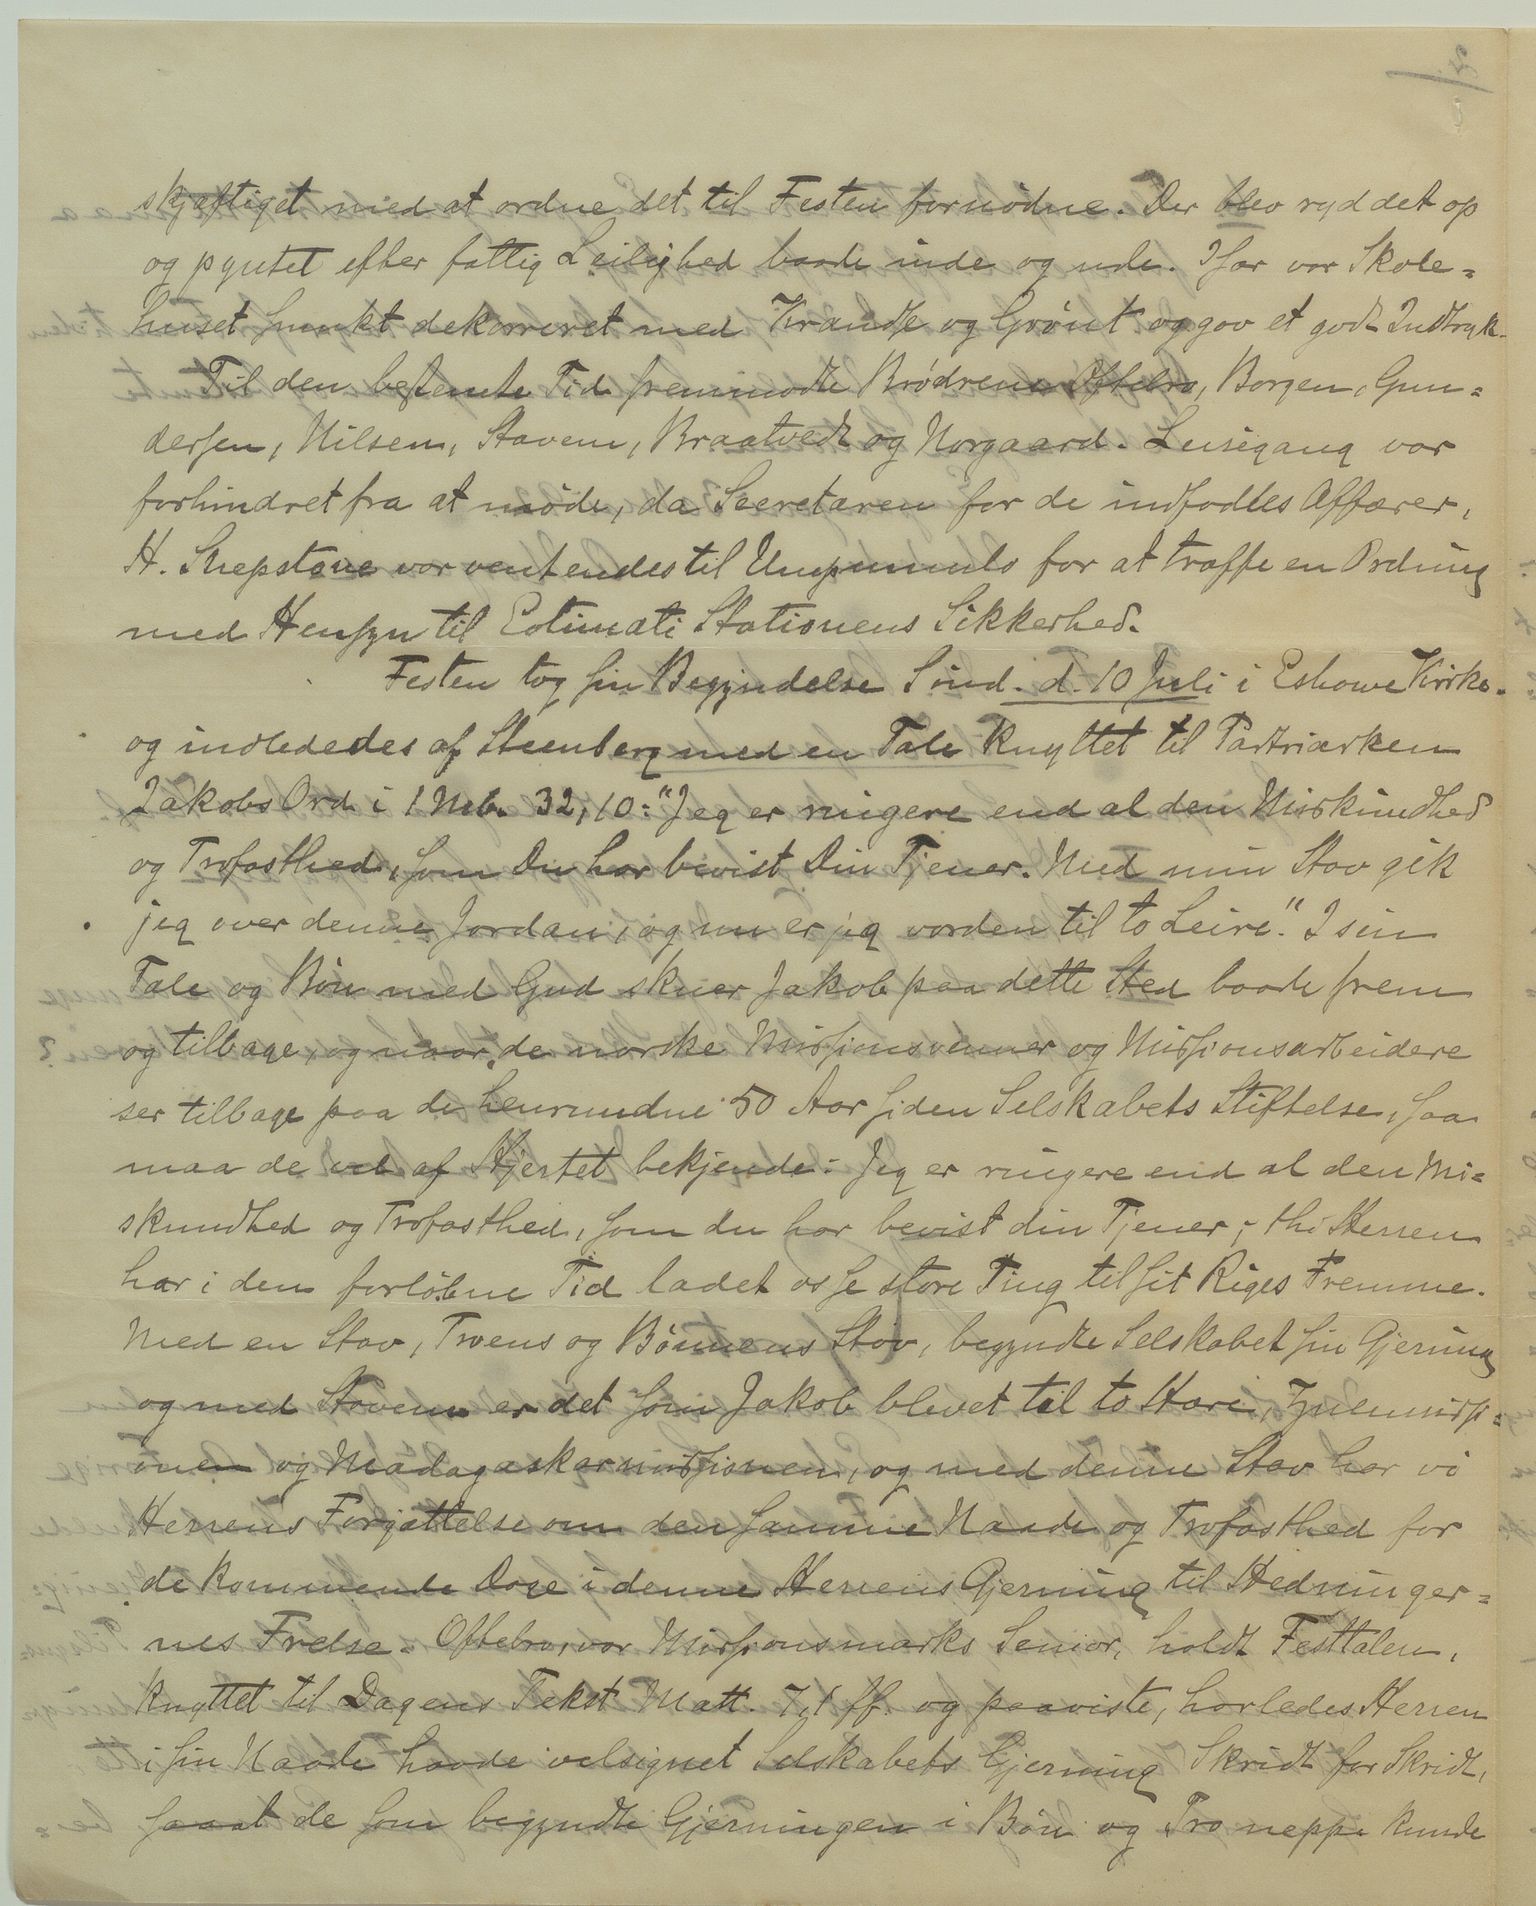 skjæftiget med at ordne det til Festen fornödne. Der blev ryddet op
og pyntet efter fattig Leilighed baade inde og ude. Isar var Skole=
huset smukt dekorreret med Krandse og Grönt og gav et godt Indtryk.
Til den bestemte Tid fremmödte Brödrene Oftebro, Borgen, Gun=
dersen, Nilsen, Stavem, Braatvedt og Norgaard. Leisegang var
forhindret fra at möde, da Secretæren for de indfödtes Affærer,
H. Shepstone var ventendes til Umpumulo for at træffe en Ordning
med Hensyn til Eotimati Stationens Sikkerhed.
Festen tog sin Begyndelse Sönd. d. 10 Juli i Eshowe Kirke.
og indlededes af Steenberg med en Tale knyttet til Partriarken
Jakobs Ord i 1 Mb. 32,10: "Jeg er ringere end al den Miskundhed
og Trofasthed, som Du har bevist Din Tjener. Med min Stav gik
jeg over denne Jordan, og nu er jeg vorden til to Leire." I sin
Tale og Bön med Gud skuer Jakob paa dette Sted baade frem
og tilbage, og naar de norske Missionsvenner og Missionsarbeidere
ser tilbage paa de henrundne 50 Aar siden Selskabets Stiftelse, saa
maa de vel af Hjertet bekjende: Jeg er ringere end al den Mi=
skundhed og Trofasthed, som du har bevist din Tjener; thi Herren
har i den forlöbne Tid ladet os se store Ting til sit Riges Fremme.
Med en Stav, Troens og Bönnens Stav, begyndte Selskabet sin Gjerning
og med Staven er det som Jakob blevet til to Hære, Zulumissi=
onen og Madagaskarmissionen, og med denne Stav har vi
Herrens Forjættelse om den samme Naade og Trofasthed for
de kommende Dage i denne Herrens Gjerning til Hedninger=
nes Frelse. Oftebro, vor Missionsmarks Senior, holdt Festtalen,
knyttet til Dagens Tekst Matt. 7,1 ff. og paaviste, hvorledes Herren
i sin Naade havde velsignet Selskabets Gjerning Skridt for Skridt,
saaat de som begyndte Gjerningen i Bön og Tro neppe kunde